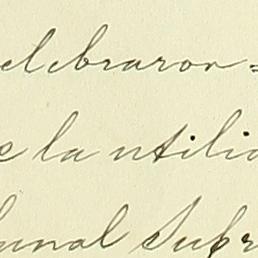 celebraron=
e la utilid
bunal Supr